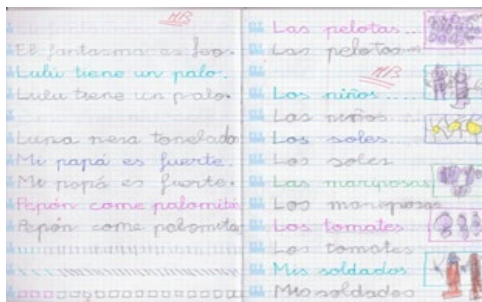 MB
El fantasma es feo.
Lulú tiene un palo.
Lulu tiene un palo.
Luna pesa tonelada
Mi papá es fuerte.
Mi papá es fuerte.
Pepón come palomita
Pepón come palomita
Las pelotas...
Las pelotas
MB
Los niños.....
Las niños
Los soles
Los soles
Las mariposas
Las mariposas
Los tomates
Los tomates
Mis soldados
Mis soldados